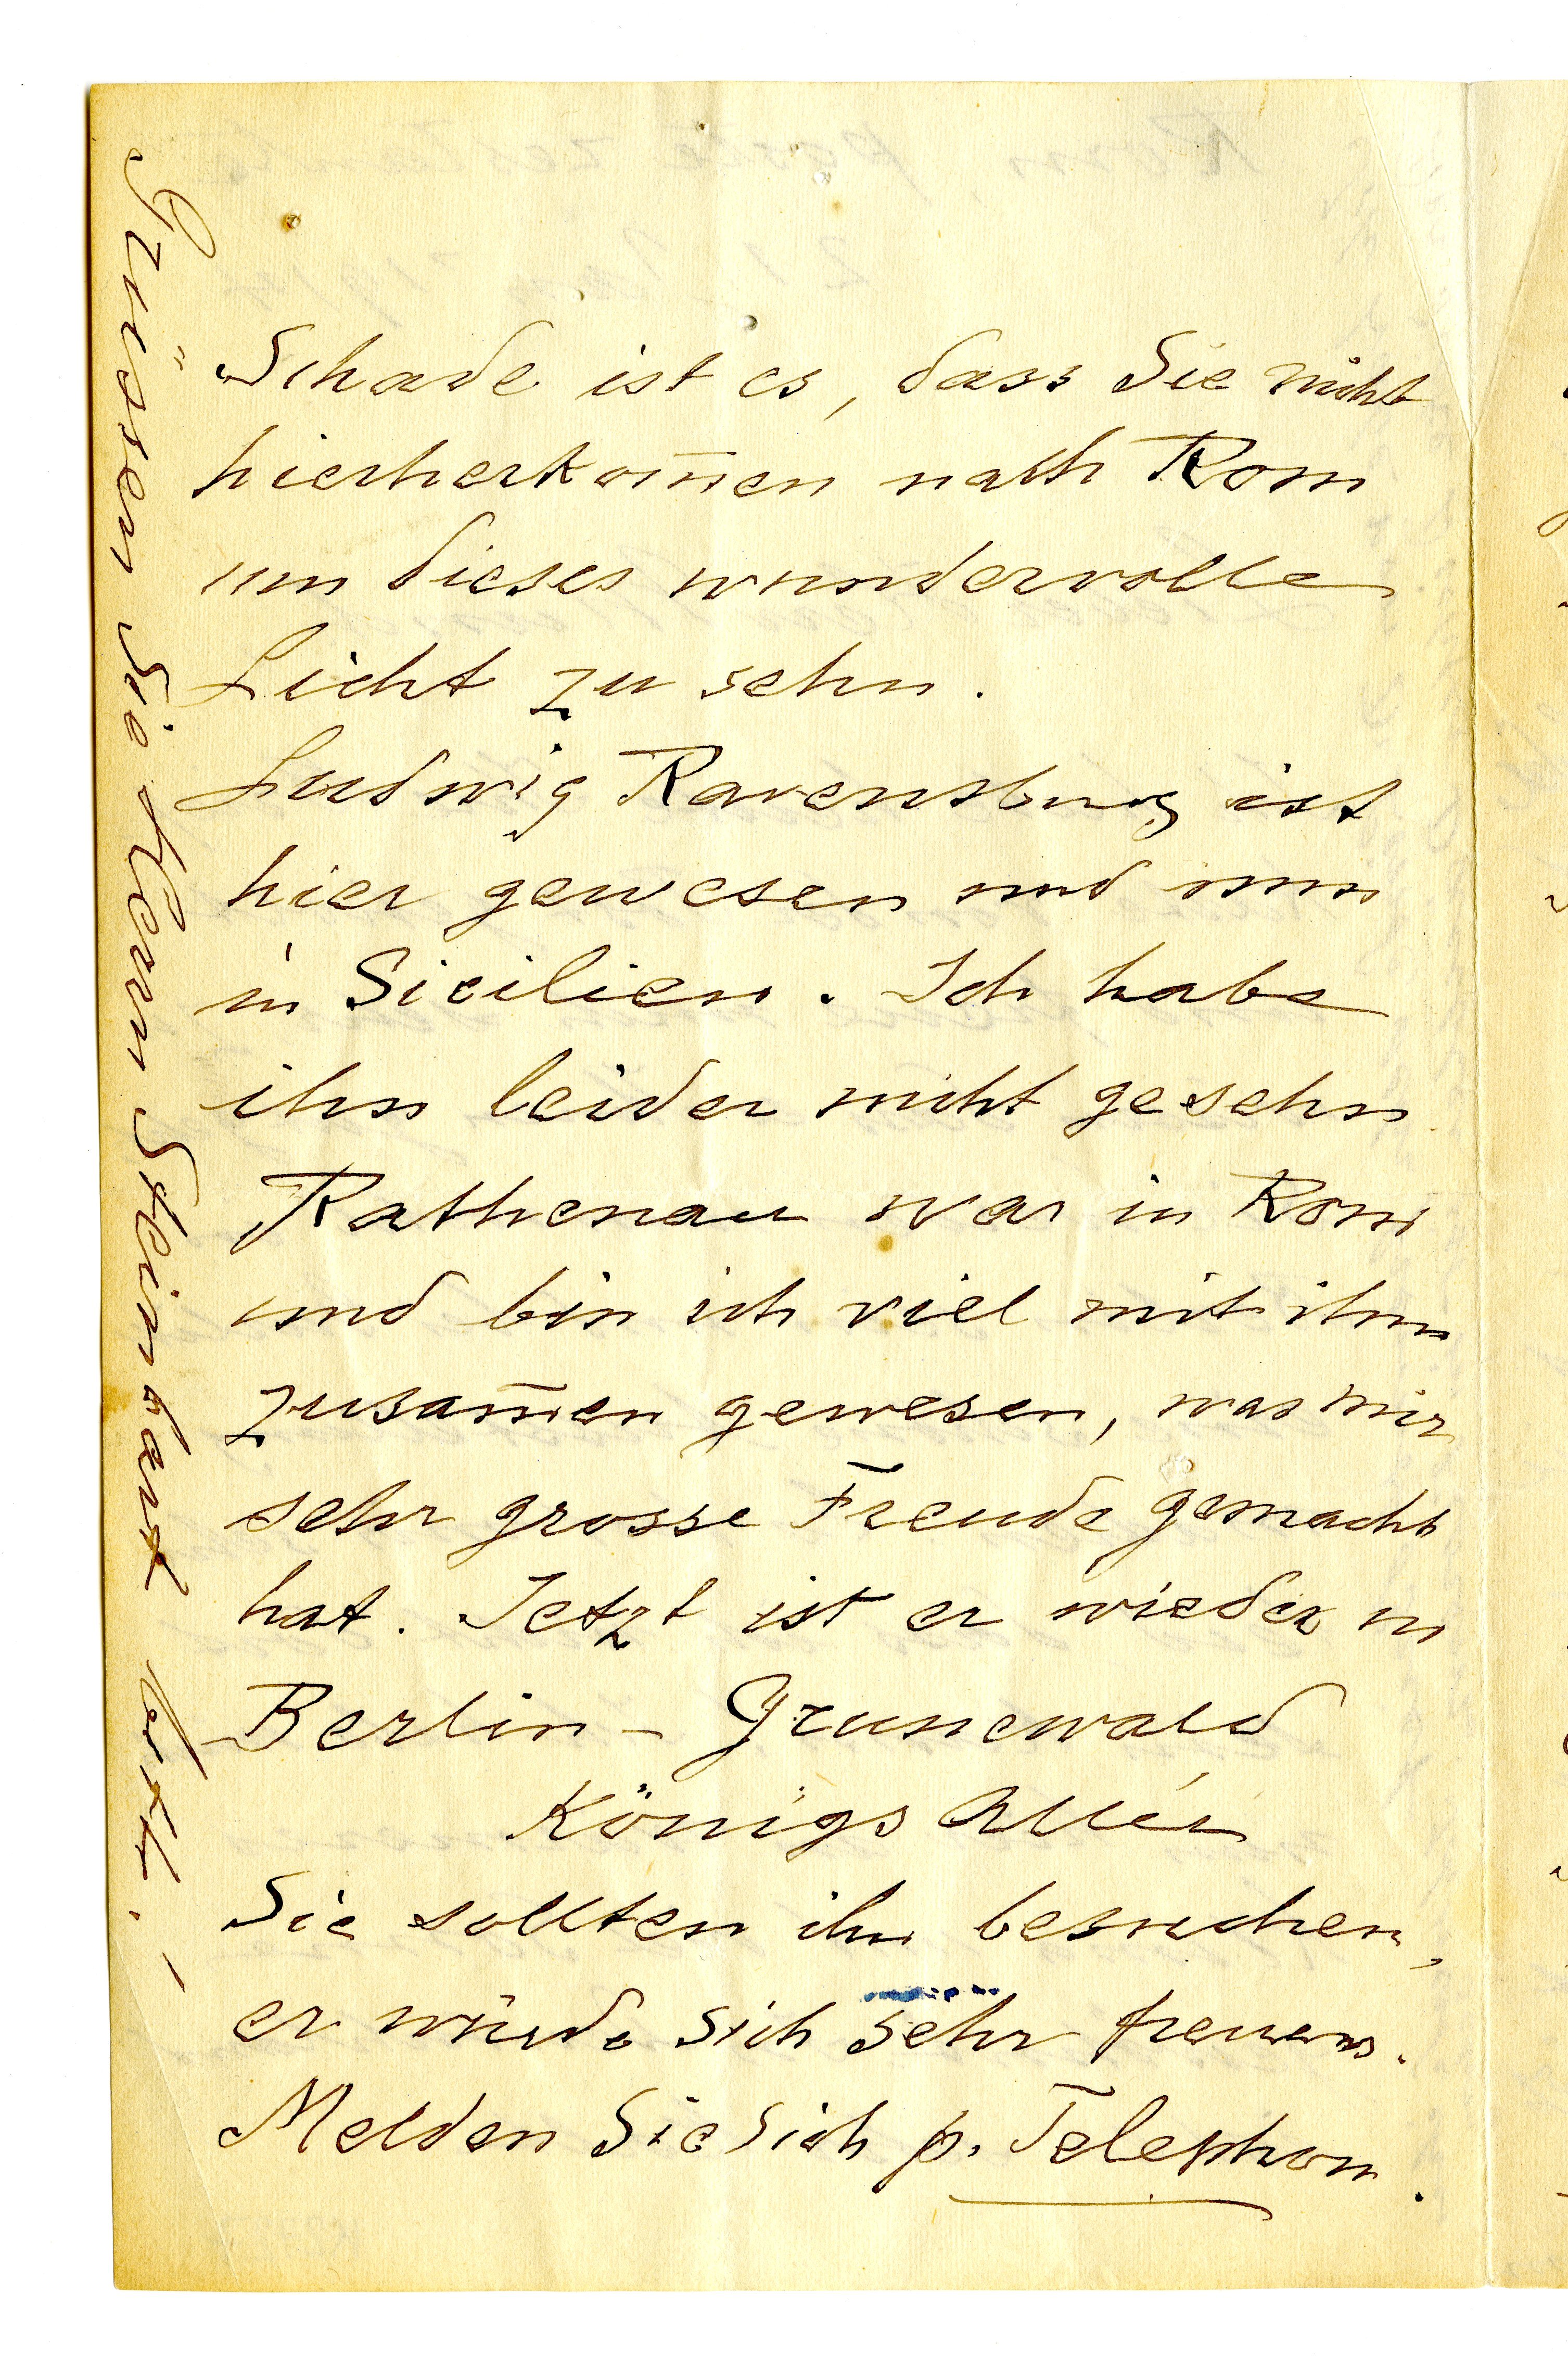 Schade ist es, dass Sie nicht
hierherkom̄en nach Rom
um dieses wundervolle
Licht zu sehn.
Ludwig Ravensburg ist
hier gewesen und nun
in Sicilien. Ich habe
ihn leider nicht gesehn.
Rathenau war in Rom
und bin ich viel mit ihm
zusam̄en gewesen, was mir
sehr grosse Freude gemacht
hat. Jetzt ist er wieder in
Berlin - Grunewald
Königs Allée
Sie sollten ihn besuchen,
er würde sich sehr freuen.
Melden Sie Sich p. Telephon.
Grüssen Sie Herrn Steinbart bestl.!